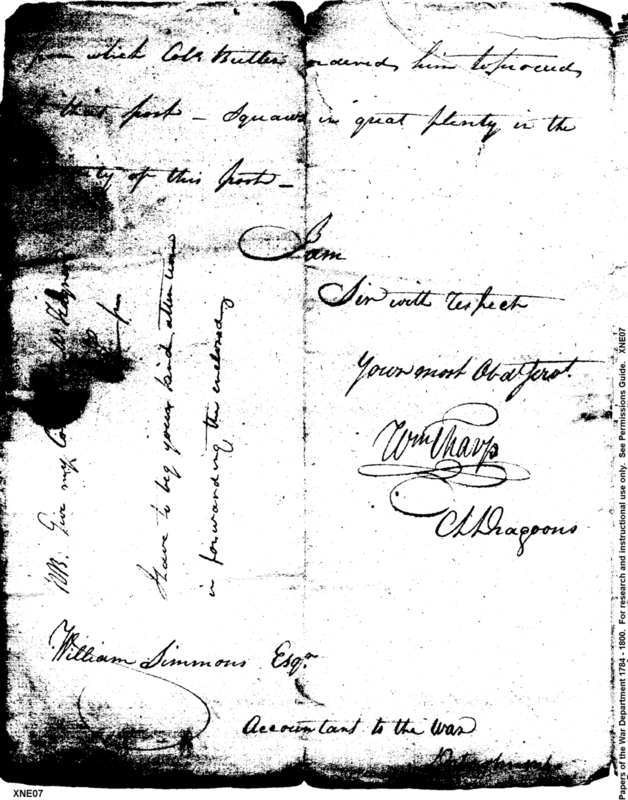 from which Colo Butler ordered him to proceed
that post — Squaws in great plenty in the
of this post —
I am
Sir with respect
Your most Obdt Servt.
Wm Tharp
Dragoons
NB. Give my
I have to beg your kind attention
in forwarding the enclosed
William Simmons Esqr.
Accountant to the War
Department
XNE07
Papers of the War Department 1784 - 1800. For research and instructional use only. See Permissions Guide. XNE07